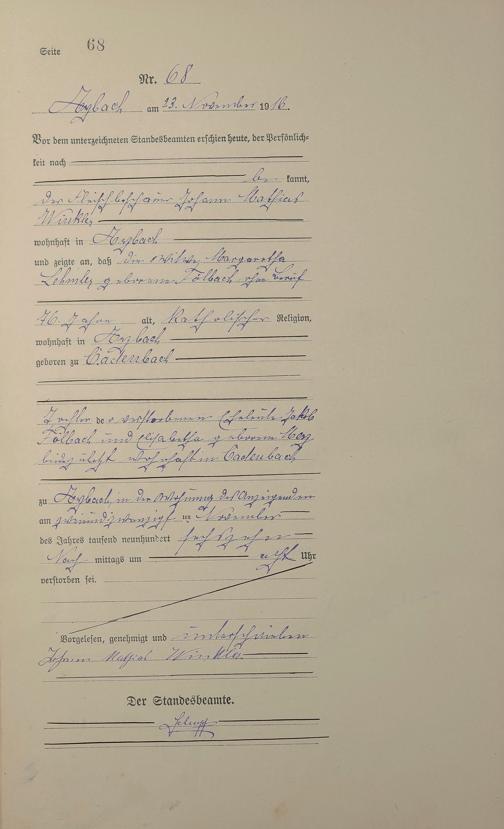 Seite 68
Nr. 68
Arzbach am 23. November 1916.
Vor dem unterzeichneten Standesbeamten erschien heute, der Persönlich-
keit nach
be kannt,
der Fleischbeschauer Johann Mathias
Winkler
wohnhaft in Arzbach
und zeigte an, daß die Witwe Margaretha
geborene Fölbach ohne Beruf
76 Jahre alt, katholischer Religion,
wohnhaft in Arzbach
geboren zu Cadenbach
Tochter der verstorbenen Eheleute Jakob
Fölbach und Elisabetha geborene
beide zuletzt wohnhaft in Cadenbach
zu Arzbach, in der Wohnung des Anzeigenden
am zweiundzwanzigsten November
des Jahres tausend neunhundert sechszehn
Nach mittags um acht Uhr
verstorben sei.
Vorgelesen, genehmigt und unterschrieben
Johann Mathias Winkler
Der Standesbeamte.